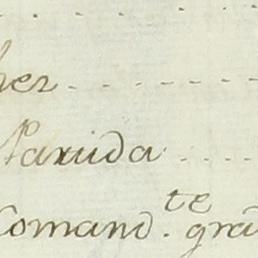 her
Paruda
Comand.te gra